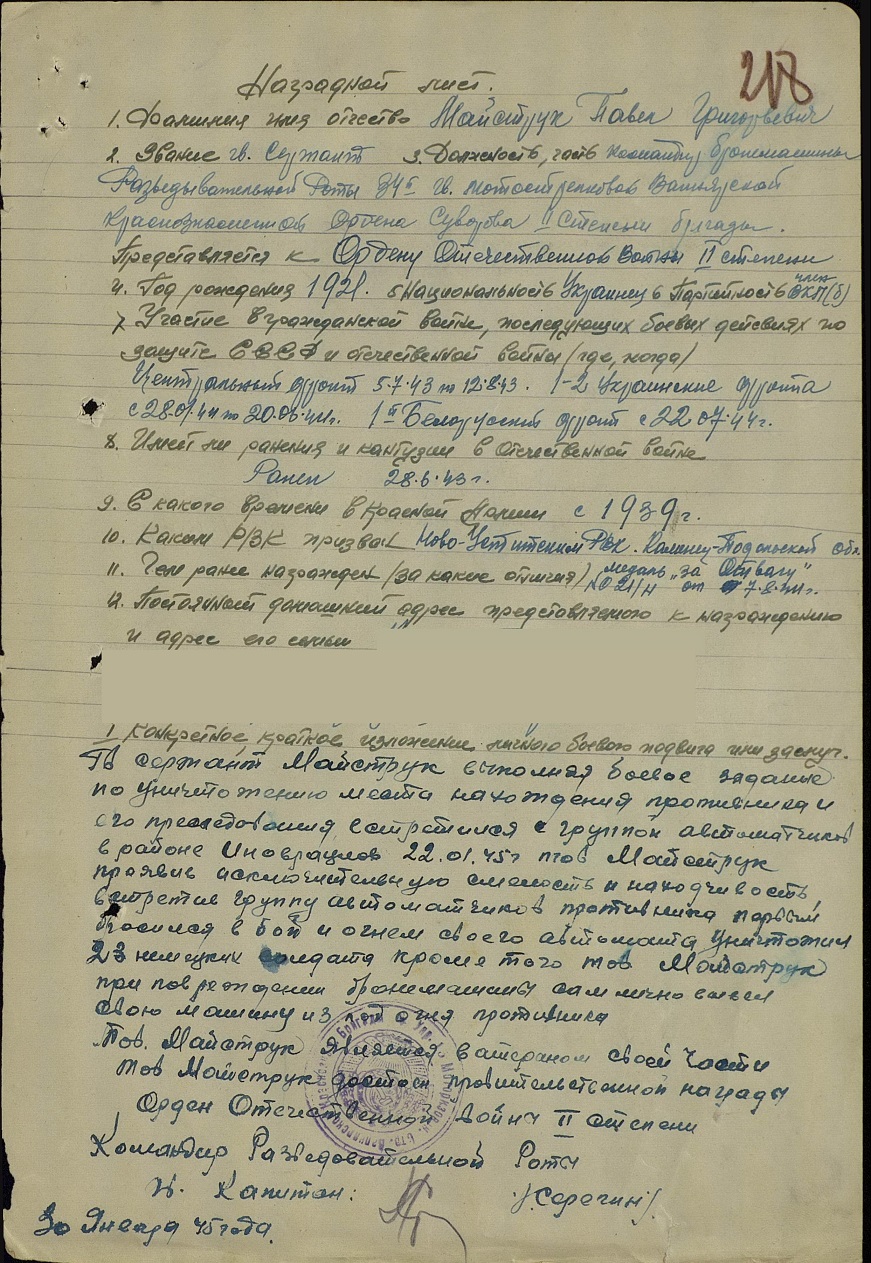 218
Наградной лист.
1. Фамилия имя отчество Майструк Павел Григорьевич
2. Звание гв. Сержант 3. Должность, часть Командир бронемашины
Разведывательной Роты 34й гв. мотострелковой Вапнярской
Краснознаменной Ордена Суворова II Степени бригады.
Представляется к Ордену Отечественной Войны II степени
4. Год рождения 1921. 5 Национальность Украинец 6 Партийность член ВКП(б)
7 Участие в гражданской войне, последующих боевых действиях по
защите СССР и отечественной войны (где, когда)
Центральный фронт 5.7.43 по 12.8.43. 1-2 Украинские фронта
с 28.01.44 по 20.06.44г. 1й Белорусский фронт с 22 07.44г.
8. Имеет ли ранения и кантузии в Отечественной войне
Ранен 28.6.43г.
9. С какого времени в Красной Армии с 1939г.
10. Каким РВК призван Ново-Устиценским РВК. Каменец-Подольской обл.
11. Чем ранее награжден (за какие отличия) медаль „за Отвагу"
№021/н от 7.8.44г.
12. Постоянный домашний адрес представляемого к награждению
и адрес его семьи
1 Конкретное, краткое изложение личного боевого подвига или заслуг.
Гв сержант Майструк выполняя боевое задание
по уничтожению места нахождения противника и
его преследования встретился с группой автоматчиков
в районе Иноврацлов 22.01.45г тов Майструк
проявив исключительную смелость и находчивость
встретив группу автоматчиков противника первым
бросился в бой и огнем своего автомата уничтожил
23 немецких солдата кроме того тов Майструк
при повреждении бронемашины сам лично вывел
свою машину из под огня противника
Тов. Майструк является ватераном своей части
тов Майструк достоен правительственной награды
Орден Отечественной война II степени
Командир Разведовательной Роты
гв. Капитан: /Серегин/
30 Января 45 года.